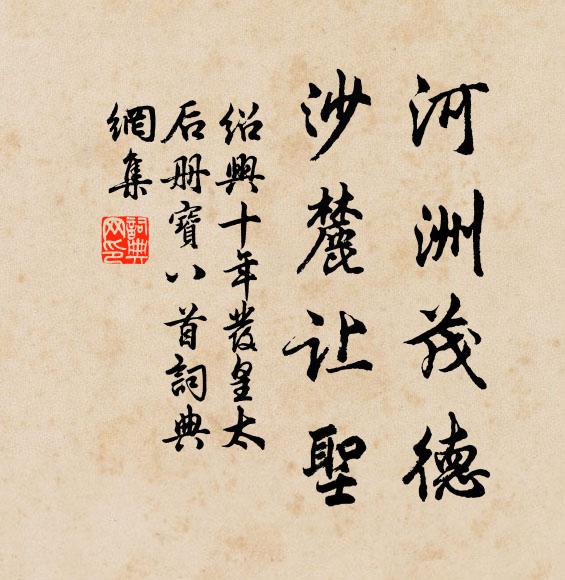 河洲茂德
沙麓让聖
绍興十年發皇太
后册寶八首詞典
網集
詞典
网印